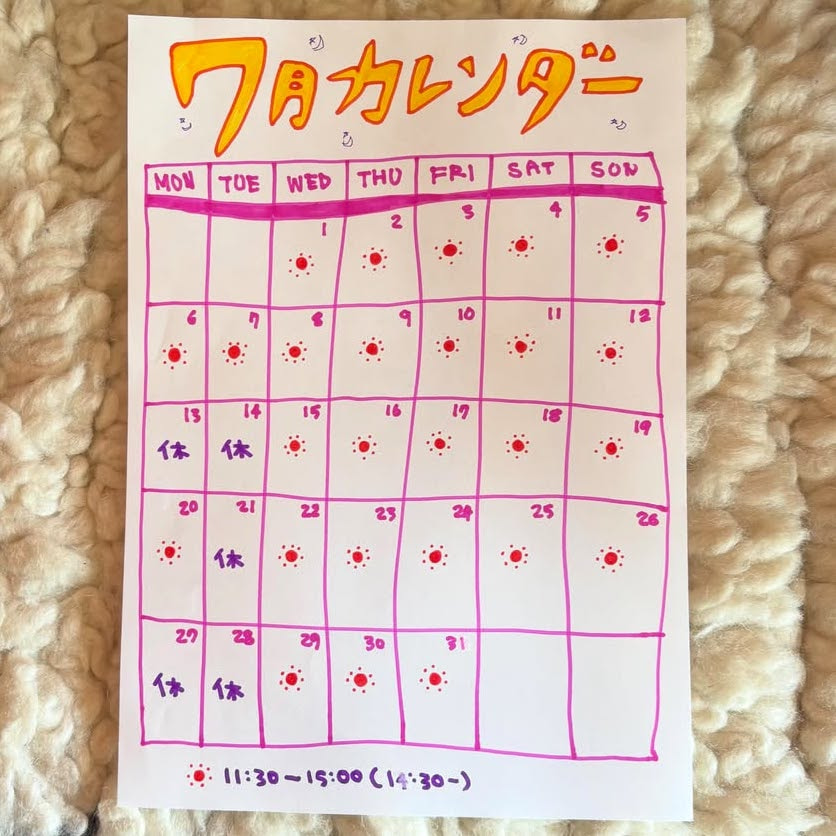 7月カレンダー
MON TUE WED THU FRI SAT SON
1 2 3 4 5
6 7 8 9 10 11 12
13 14 15 16 17 18 19
休 休
20 21 22 23 24 25 26
休
27 28 29 30 31
休 休
11:30-15:00(14:30-)